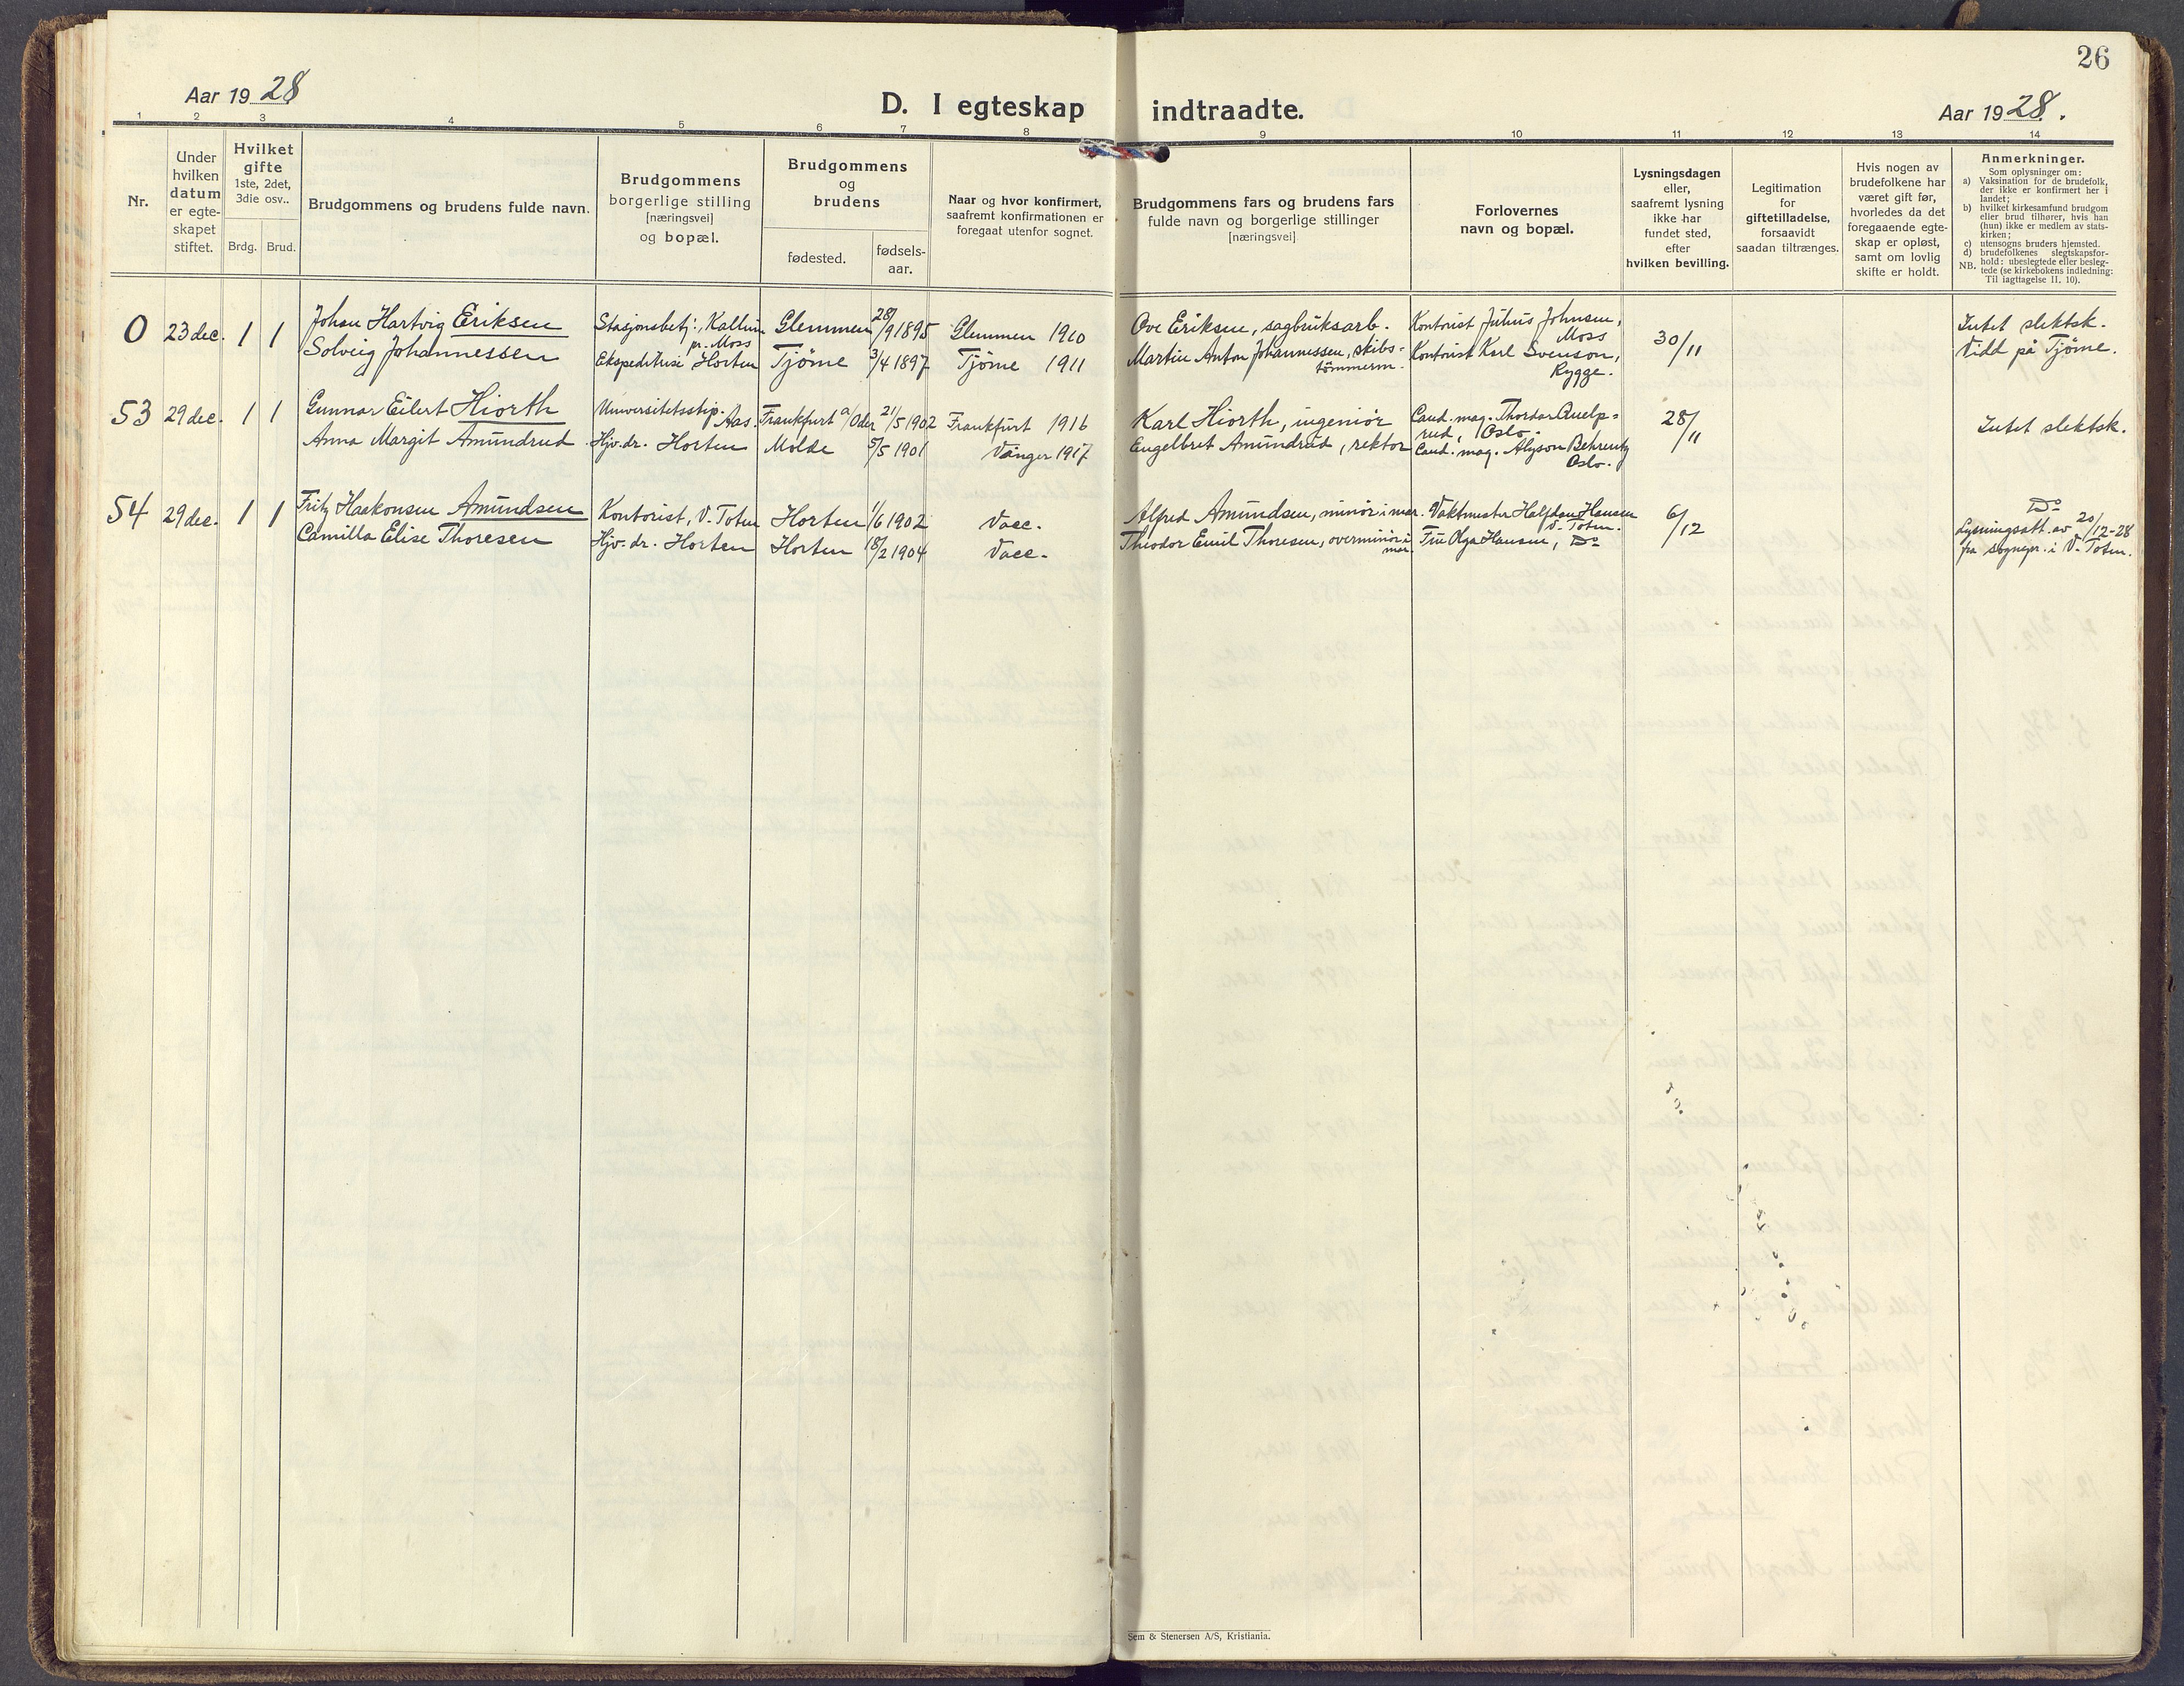 26
Aar 1928
D. I egteskap indtraadte.
Aar 1928.
1 2 3 4 5 6 7 8 9 10 11 12 13 14
Nr.
Under
hvilken
datum
er egte-
skapet
stiftet.
Hvilket
gifte
1ste, 2det,
3die osv..
Brdg. Brud.
Brudgommens og brudens fulde navn.
Brudgommens
borgerlige stilling
[næringsvei]
og bopæl.
Brudgommens
og
brudens
fødested.
fødsels-
aar.
Naar og hvor konfirmert,
saafremt konfirmationen er
foregaat utenfor sognet.
Brudgommens fars og brudens fars
fulde navn og borgerlige stillinger
[næringsvei]
Forlovernes
navn og bopæl.
Lysningsdagen
eller,
saafremt lysning
ikke har
fundet sted,
efter
hvilken bevilling.
Legitimation
for
giftetilladelse,
forsaavidt
saadan tiltrænges.
Hvis nogen av
brudefolkene har
været gift før,
hvorledes da det
foregaaende egte-
skap er opløst,
samt om lovlig
skifte er holdt.
Anmerkninger.
Som oplysninger om:
a) Vaksination for de brudefolk,
der ikke er konfirmert her i
landet;
b) hvilket kirkesamfund brudgom
eller brud tilhører, hvis han
(hun) ikke er medlem av stats-
kirken;
c) utensogns bruders hjemsted.
d) brudefolkenes slegtskapsfor-
hold: ubeslegtede eller besleg-
NB. tede (se kirkebokens indledning:
Til iagttagelse II, 10).
0 23 dec. 1 1
Johan Hartvig Eriksen
Solveig Johannessen
Stasjonsbetj:, Kallum
pr. Moss
Ekspeditrise Horten
Glemmen 28/9 1895
Tjöme 3/4 1897
Glemmen 1910
Tjöme 1911
Ove Eriksen, sagbruksarb.
Martin Anton Johannessen, skibs-
tömmerm.
Kontorist Julius Johnsen,
Moss
Kontorist Karl Svenson,
Rygge.
30/11
Intet slektsk.
Vidd på Tjöme.
53 29 dec. 1 1
Gunnar Eilert Hiorth
Anna Margit Amundrud
Universitetsstip. Aas.
Hjv. dr. Horten
Frankfurt a/Oder 21/5 1902
Molde 5/5 1901
Frankfurt 1916
Vanger 1917
Karl Hiorth, ingeniör
Engelbret Amundrud, rektor
Cand. mag. Thordar Quelp-
rud, Oslo.
Cand. mag. Alyson Behrentz
Oslo.
28/11
Intet slektsk.
54 29 dec. 1 1
Fritz Haakonsen Amundsen
Camilla Elise Thoresen
Kontorist, V. Toten
Hjv. dr. Horten
Horten 1/6 1902
Horten 18/2 1904
Vacc.
Vacc.
Alfred Amundsen, minör i mar.
Theodor Emil Thoresen, overminör i
mar.
Vaktmester Halfdan Hansen
V. Toten.
Fru Olga Hansen, Do
6/12
Do
Lysningsatt. av 20/12-28
fra sognepr. i V. Toten.
Sem & Stenersen A/S, Kristiania.